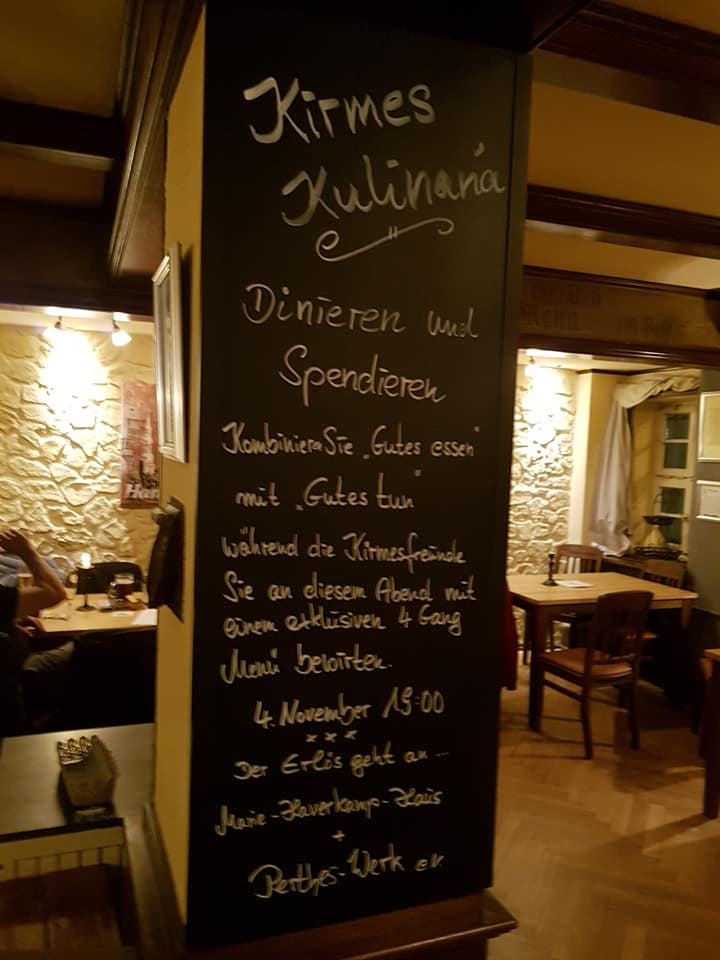 Kirmes
Kulinaria
Dinieren und
Spendieren
Kombinieren Sie „Gutes essen"
mit „Gutes tun"
während die Kirmesfreunde
Sie an diesem Abend mit
einem exklusiven 4 Gang
Menü bewirten.
4. November 19:00
***
Der Erlös geht an...
Marie-Haverkamp-Haus
+
Perthes-Werk e.V.